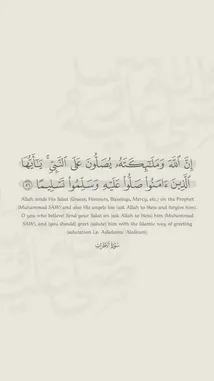 إِنَّ ٱللَّهَ وَمَلَـٰٓئِكَتَهُۥ يُصَلُّونَ عَلَى ٱلنَّبِىِّ ۚ يَـٰٓأَيُّهَا
ٱلَّذِينَ ءَامَنُوا۟ صَلُّوا۟ عَلَيْهِ وَسَلِّمُوا۟ تَسْلِيمًا ٥٦
Allah sends His Salat (Graces, Honours, Blessings, Mercy, etc.) on the Prophet
(Muhammad SAW) and also His angels too (ask Allah to bless and forgive him).
O you who believe! Send your Salat on (ask Allah to bless) him (Muhammad
SAW), and (you should) greet (salute) him with the Islamic way of greeting
(salutation i.e. AsSalamu 'Alaikum).